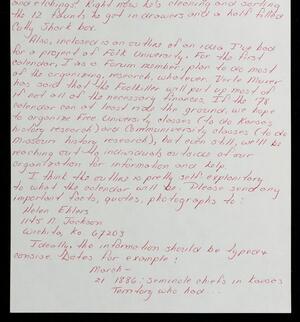 and etchings. Right now he's cleaning and sorting
the 12 founts he got in drawers and a half filled
Cutty Shark box.
Also, inclosed is an outline of an idea I've had
for a project at Folk University. For the first
calendar, I as a Forum member, plan to do most
of the organizing, research, whatever.
has said that the Footkiller will put up most of
if not all of the necessary finances. If the '78
calendar can at least make the ground, we hope
to organize Free University classes (to do Kansas
history research) and Communiversity classes (to do
Missouri history research), but even still, we'll be
reaching out the individuals outside of our
organization for information and help.
I think the outline is pretty self-explanitory
to what the calendar will be. Please send any
important facts, quotes, photographs to:
Helen Ehlers
1145 N. Jackson
Wichita, Ks 67203
Ideally the information should be typed &
consise. Dates for example:
March -
21 1886; seminole chiefs in Kansas
Territory who had...